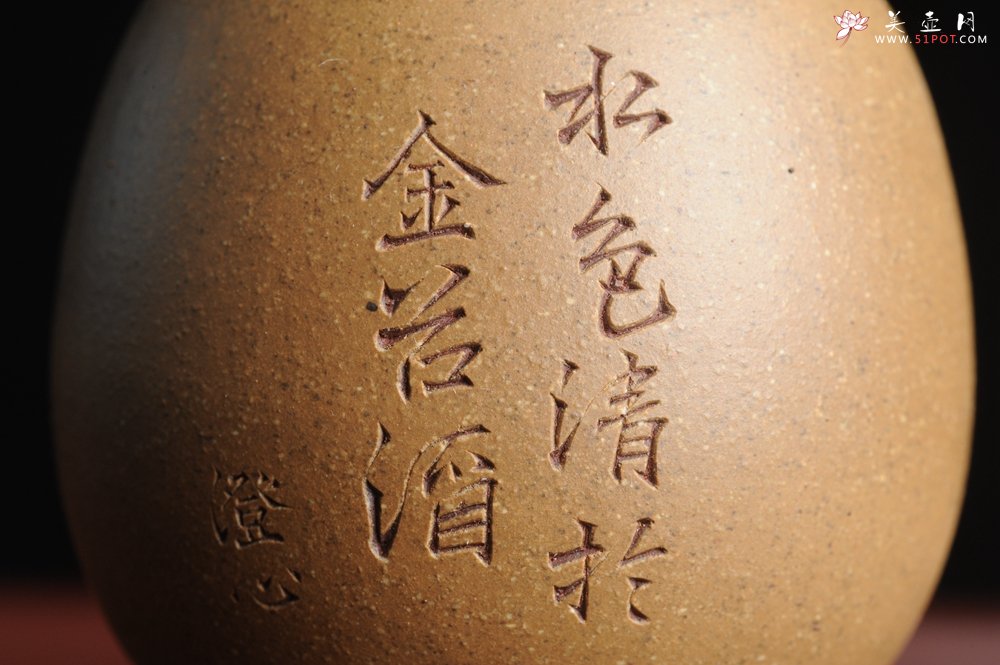 美壶网
WWW.51POT.COM
水色清於
金谷酒
澄心